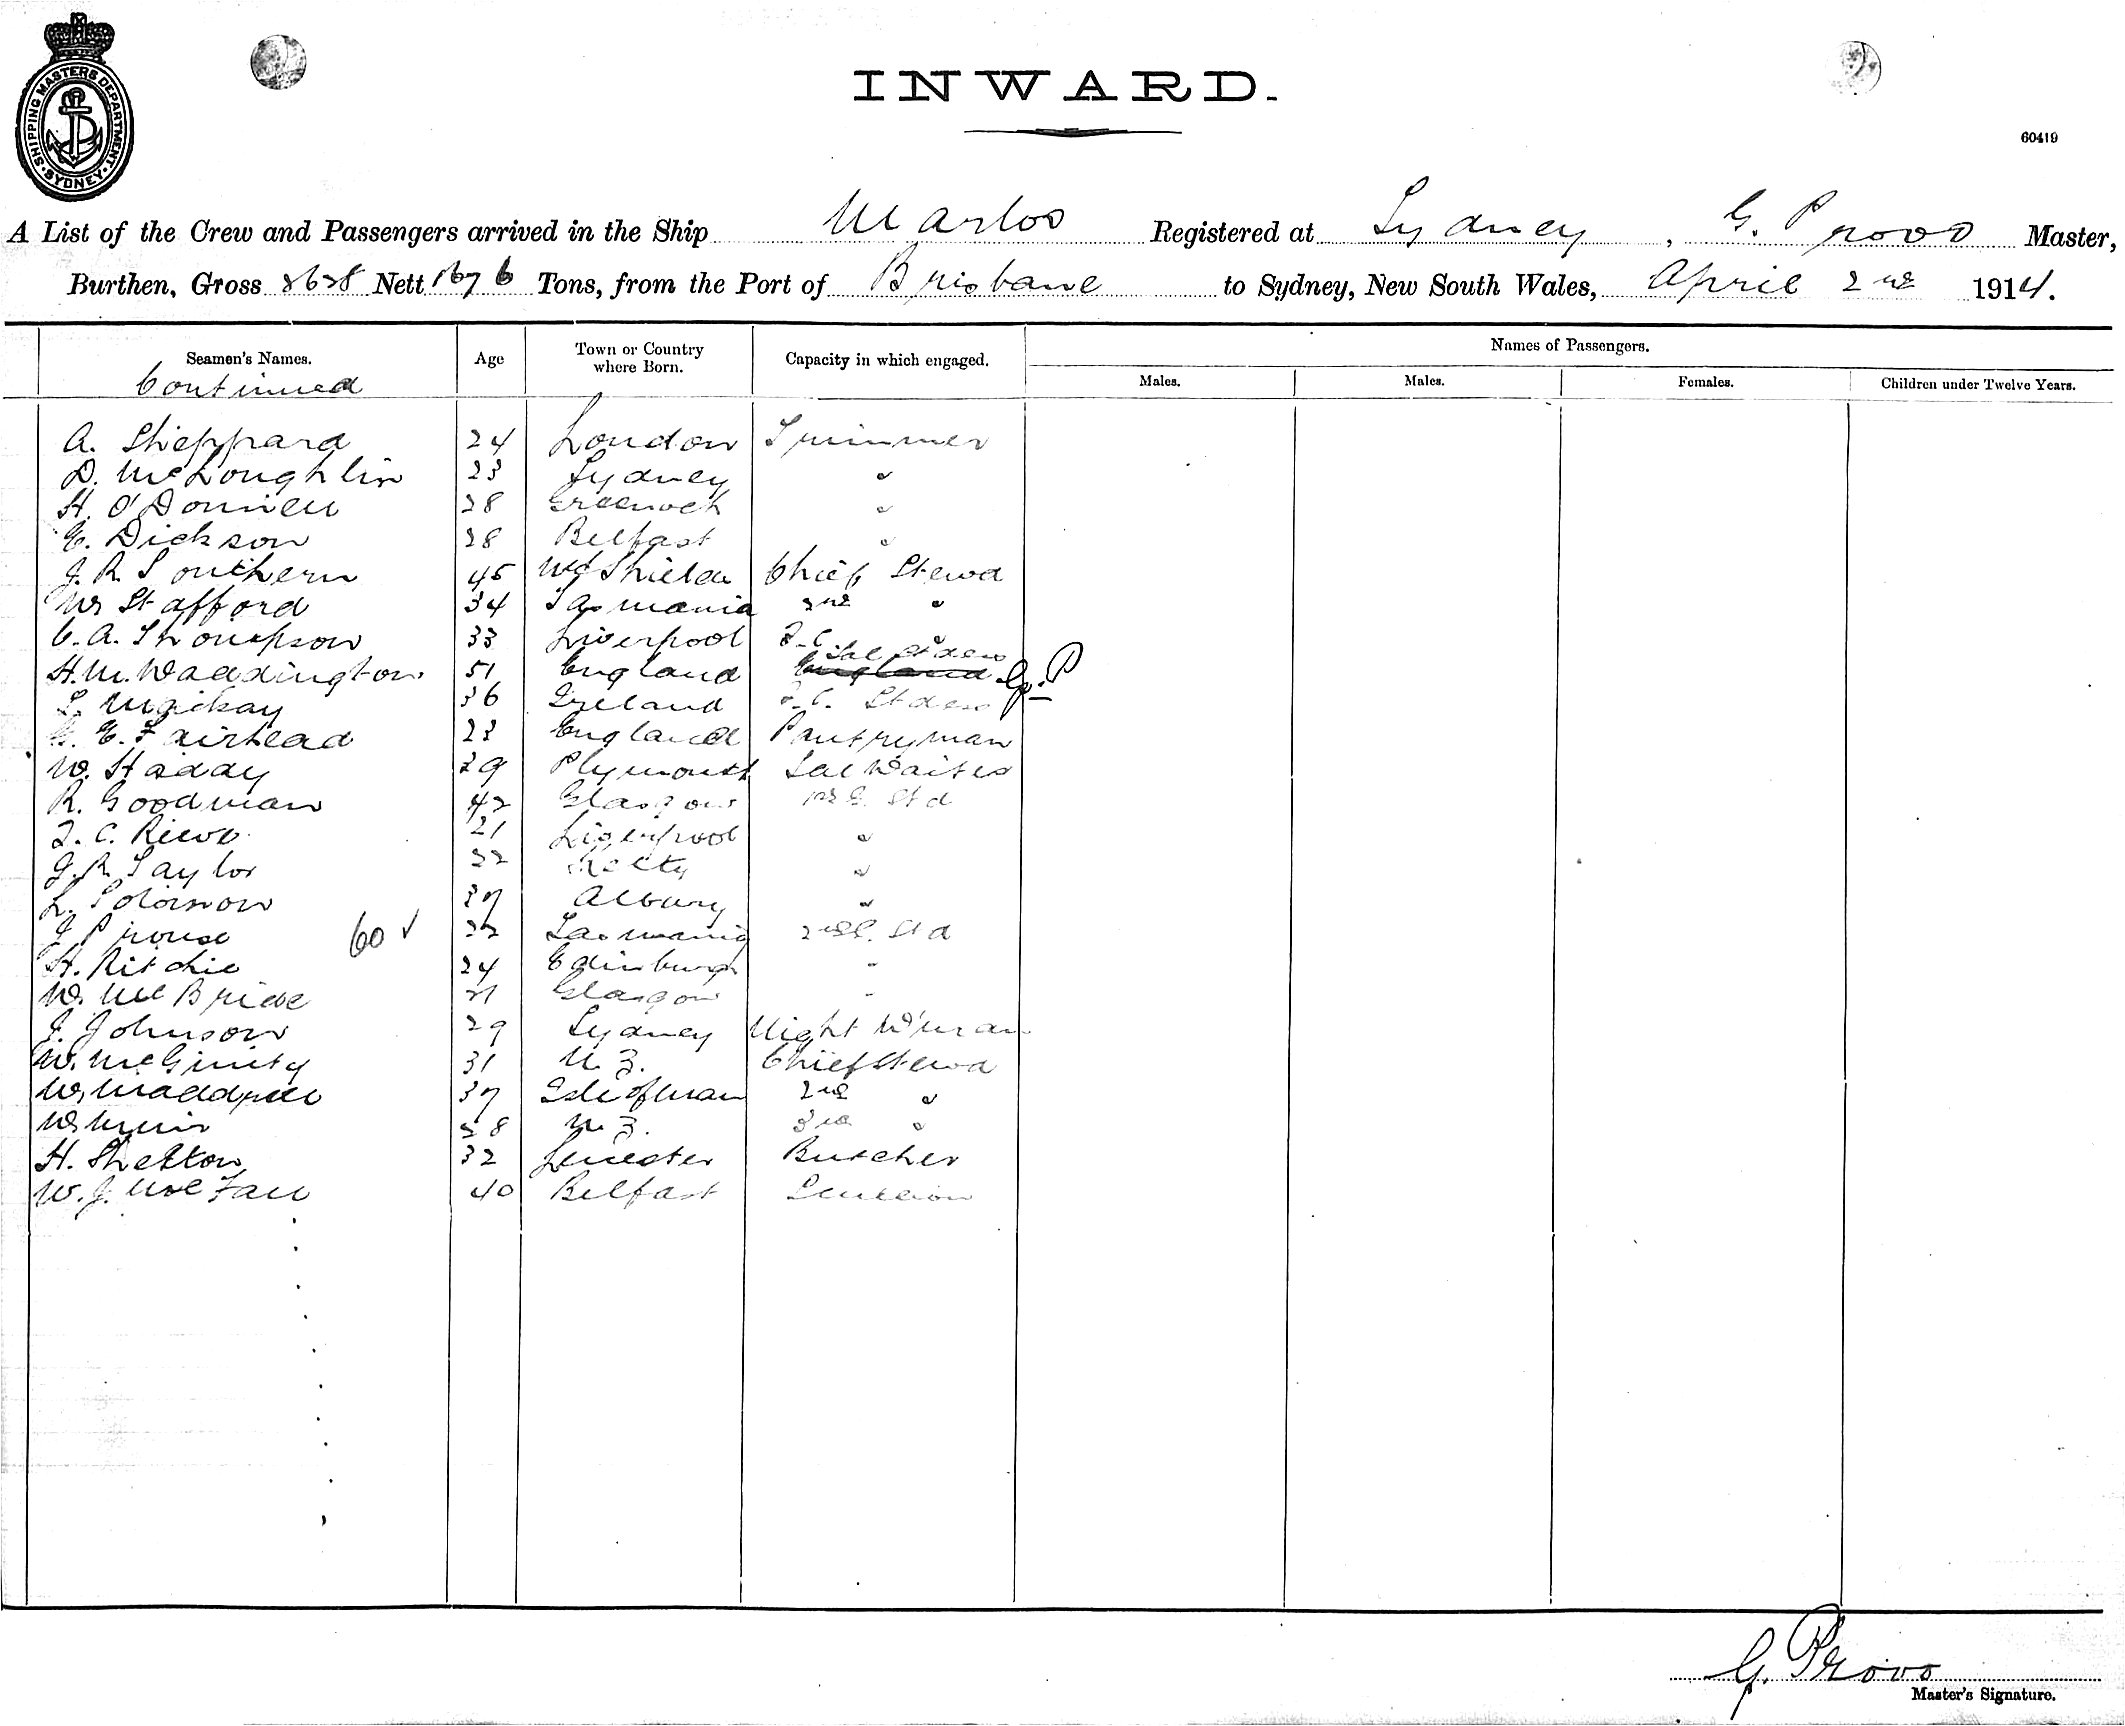 SHIPPING MASTERS DEPARTMENT
SYDNEY
INWARD.
60419
A List of the Crew and Passengers arrived in the Ship Marloo Registered at Sydney, G. Provo Master,
Burthen, Gross 2628 Nett 1676 Tons, from the Port of Brisbane to Sydney, New South Wales, April 2nd 1914.
Seamen's Names. Age Town or Country where Born. Capacity in which engaged. Names of Passengers.
Males. Males. Females. Children under Twelve Years.
Continued
A. Sheppard 24 London Trimmer
D. McLoughlin 23 Sydney "
H. O'Donnell 28 Greenock "
E. Dickson 28 Belfast "
J. R. Southern 45 Shields Chief Stewd
W Stafford 34 Tasmania 2nd "
C. A. Thompson 33 Liverpool F.C. "
H. M. Waddington 51 England England Sal Stdess G.P
Mackay 36 Ireland F.C. Stdess
E. Fairhead 23 England Pantryman
W. Hadday 29 Plymouth Sal Waiter
R. Goodman 42 Glasgow Std
F. C. 21 Liverpool "
J. R. Taylor 22 Kelty "
L. Solomon 37 Albury "
J Prouse 60 ✓ 22 Tasmania 2nd C. Std
H. Ritchie 24 Edinburgh "
W. McBride 21 Glasgow "
J. Johnson 29 Sydney Night W'man
W. McGinity 31 N.Z. Chief Stewd
W. Maddrell 37 Isle of Man 2nd "
W. Muir 28 N.Z. 3rd "
H. Shelton 32 Leicester Butcher
W. J. McFall 40 Belfast Scullion
G. Provo
Master's Signature.